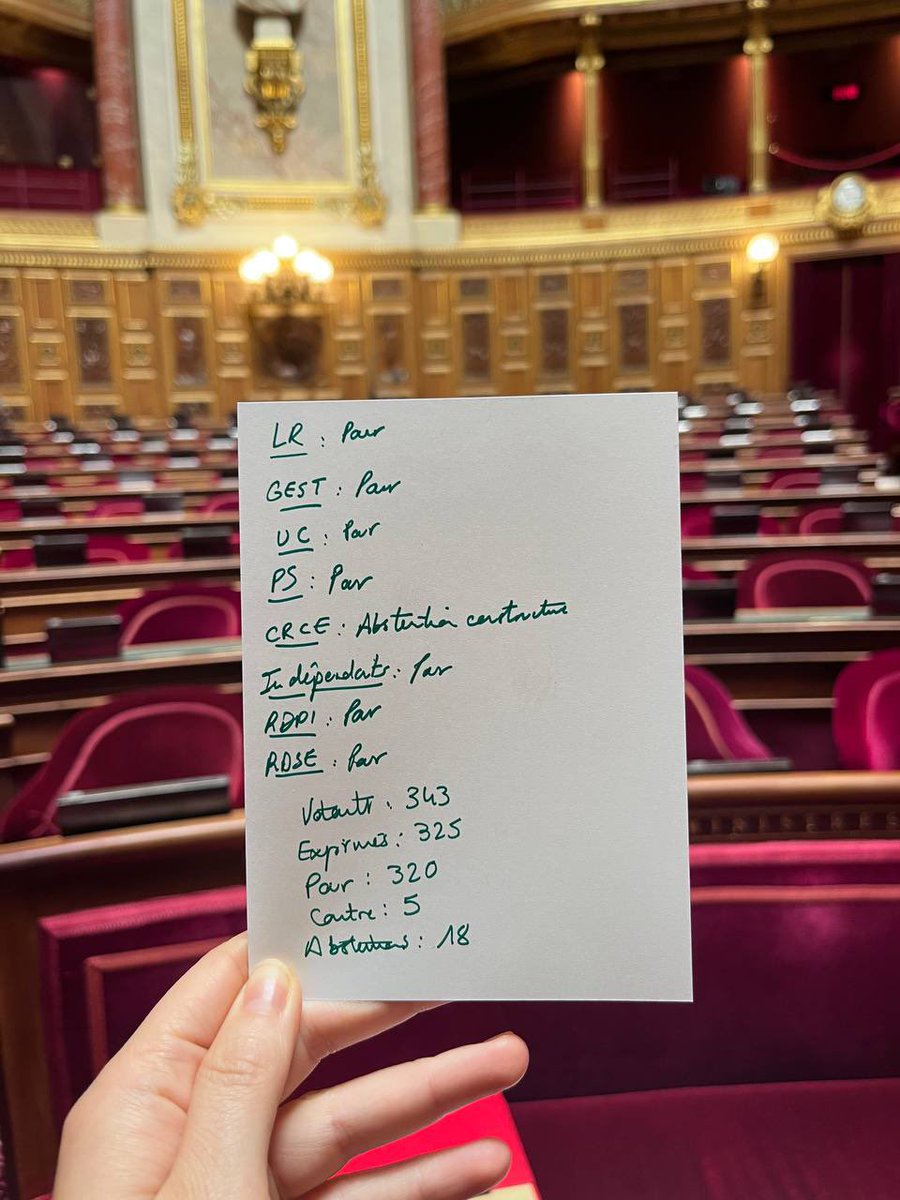 LR : Pour
GEST : Pour
UC : Pour
PS : Pour
CRCE : Abstention constructive
Indépendants : Pour
RDPI : Pour
RDSE : Pour
Votants : 343
Exprimés : 325
Pour : 320
Contre : 5
Abstentions : 18